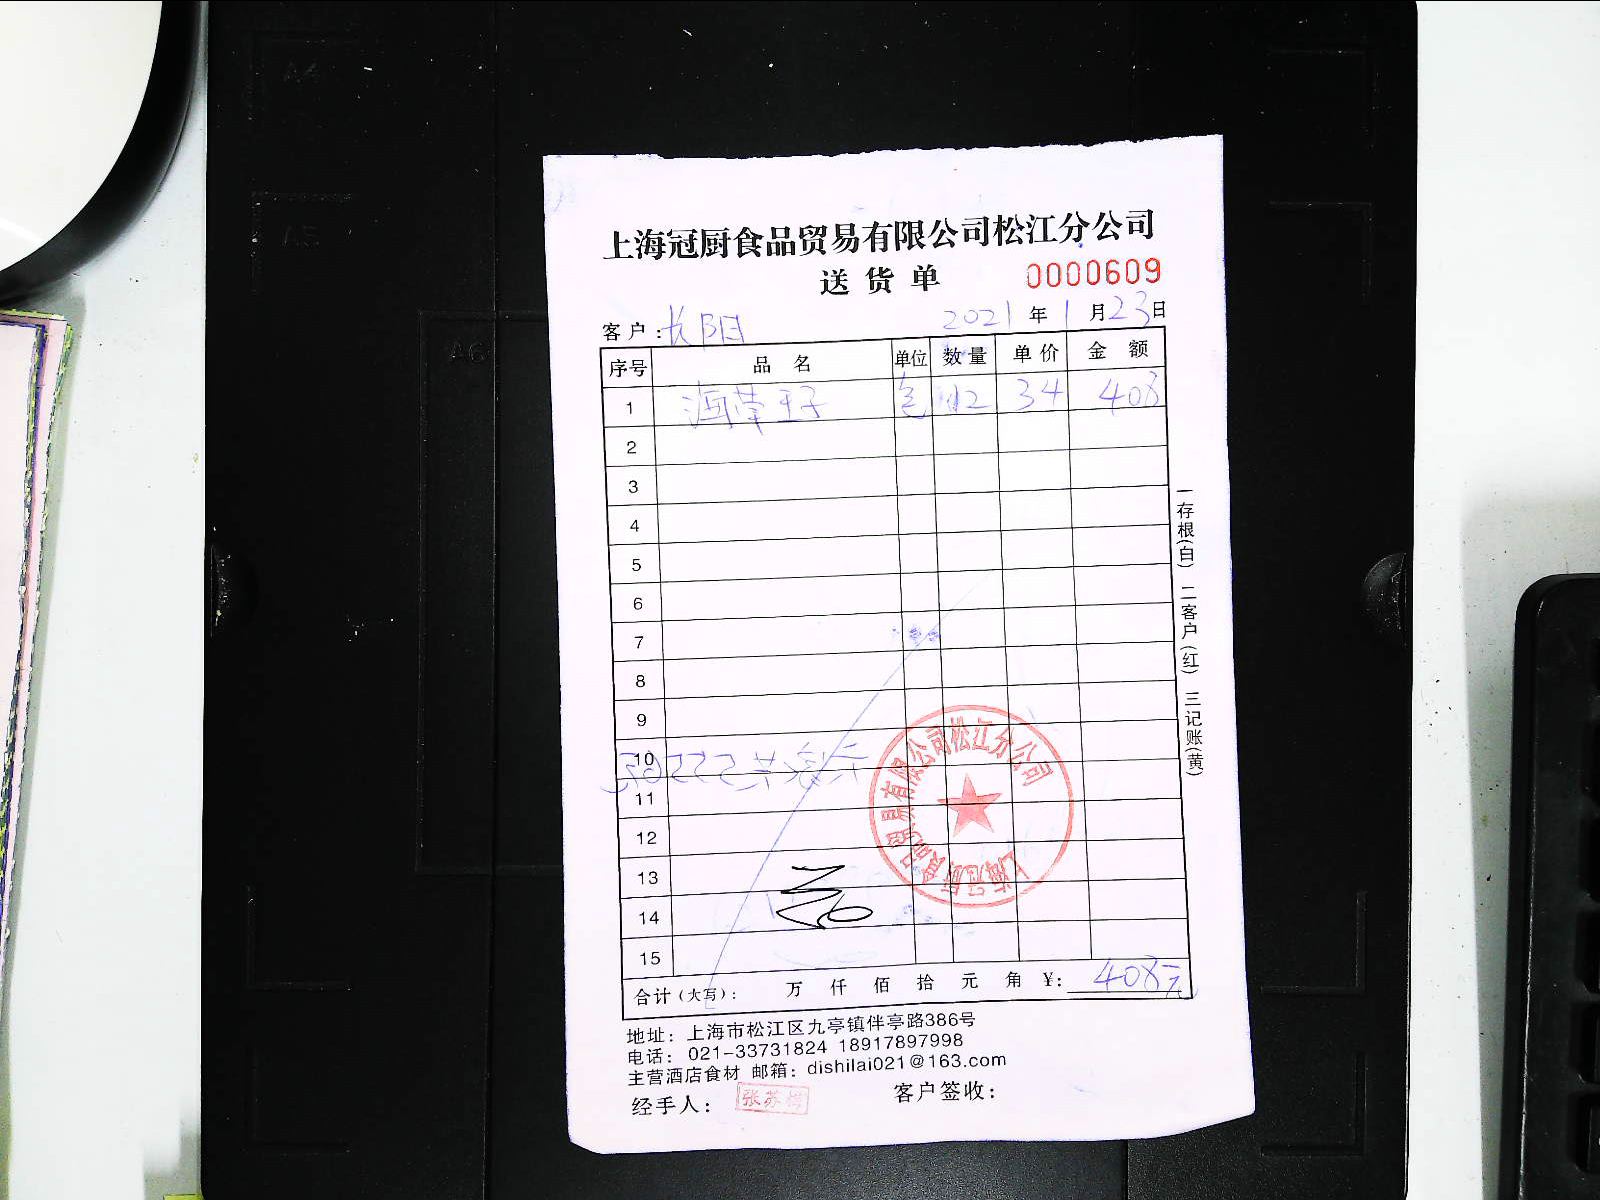 上海冠厨食品贸易有限公司松江分公司
送货单 0000609
客户：长阳 2021年1月23日
序号 品名 单位 数量 单价 金额
1 海带王子 包 12 34 408
2
3
4
5
6
7
8
9
10
11
12
13
14
15
合计（大写）： 万 仟 佰 拾 元 角 ¥：408元
地址：上海市松江区九亭镇伴亭路386号
电话：021-33731824 18917897998
主营酒店食材 邮箱：dishilai021@163.com
经手人：张苏梅 客户签收：
一存根(白) 二客户(红) 三记账(黄)
上海冠厨食品贸易有限公司松江分公司
A4
A5
A6